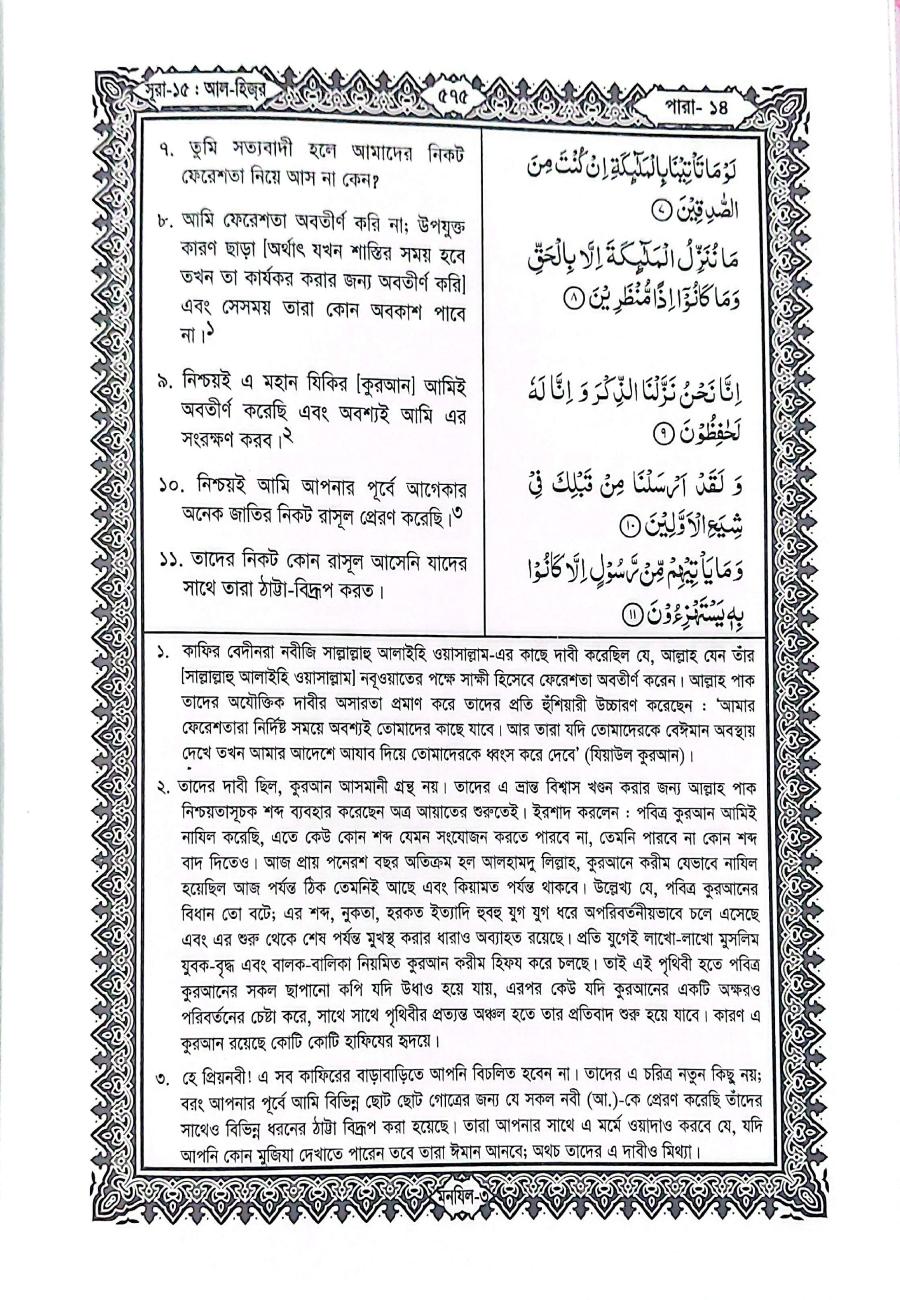 সূরা-১৫ : আল-হিজর
৫৭৫
পারা- ১৪
৭. তুমি সত্যবাদী হলে আমাদের নিকট
ফেরেশতা নিয়ে আস না কেন?
৮. আমি ফেরেশতা অবতীর্ণ করি না; উপযুক্ত
কারণ ছাড়া [অর্থাৎ যখন শাস্তির সময় হবে
তখন তা কার্যকর করার জন্য অবতীর্ণ করি]
এবং সেসময় তারা কোন অবকাশ পাবে
না।১
৯. নিশ্চয়ই এ মহান যিকির [কুরআন] আমিই
অবতীর্ণ করেছি এবং অবশ্যই আমি এর
সংরক্ষণ করব।২
১০. নিশ্চয়ই আমি আপনার পূর্বে আগেকার
অনেক জাতির নিকট রাসূল প্রেরণ করেছি।৩
১১. তাদের নিকট কোন রাসূল আসেনি যাদের
সাথে তারা ঠাট্টা-বিদ্রূপ করত।
لَوْ مَا تَاْتِيْنَا بِالْمَلٰٓئِكَةِ اِنْ كُنْتَ مِنَ
الصّٰدِقِيْنَ ۝٧
مَا نُنَزِّلُ الْمَلٰٓئِكَةَ اِلَّا بِالْحَقِّ
وَمَا كَانُوْٓا اِذًا مُّنْظَرِيْنَ ۝٨
اِنَّا نَحْنُ نَزَّلْنَا الذِّكْرَ وَ اِنَّا لَهٗ
لَحٰفِظُوْنَ ۝٩
وَ لَقَدْ اَرْسَلْنَا مِنْ قَبْلِكَ فِيْ
شِيَعِ الْاَوَّلِيْنَ ۝١٠
وَمَا يَاْتِيْهِمْ مِّنْ رَّسُوْلٍ اِلَّا كَانُوْا
بِهٖ يَسْتَهْزِءُوْنَ ۝١١
১. কাফির বেদীনরা নবীজি সাল্লাল্লাহু আলাইহি ওয়াসাল্লাম-এর কাছে দাবী করেছিল যে, আল্লাহ যেন তাঁর
[সাল্লাল্লাহু আলাইহি ওয়াসাল্লাম] নবূওয়াতের পক্ষে সাক্ষী হিসেবে ফেরেশতা অবতীর্ণ করেন। আল্লাহ পাক
তাদের অযৌক্তিক দাবীর অসারতা প্রমাণ করে তাদের প্রতি হুঁশিয়ারী উচ্চারণ করেছেন : ‘আমার
ফেরেশতারা নির্দিষ্ট সময়ে অবশ্যই তোমাদের কাছে যাবে। আর তারা যদি তোমাদেরকে বেঈমান অবস্থায়
দেখে তখন আমার আদেশে আযাব দিয়ে তোমাদেরকে ধ্বংস করে দেবে’ (যিয়াউল কুরআন)।
২. তাদের দাবী ছিল, কুরআন আসমানী গ্রন্থ নয়। তাদের এ ভ্রান্ত বিশ্বাস খণ্ডন করার জন্য আল্লাহ পাক
নিশ্চয়তাসূচক শব্দ ব্যবহার করেছেন অত্র আয়াতের শুরুতেই। ইরশাদ করলেন : পবিত্র কুরআন আমিই
নাযিল করেছি, এতে কেউ কোন শব্দ যেমন সংযোজন করতে পারবে না, তেমনি পারবে না কোন শব্দ
বাদ দিতেও। আজ প্রায় পনেরশ বছর অতিক্রম হল আলহামদু লিল্লাহ, কুরআনে করীম যেভাবে নাযিল
হয়েছিল আজ পর্যন্ত ঠিক তেমনিই আছে এবং কিয়ামত পর্যন্ত থাকবে। উল্লেখ্য যে, পবিত্র কুরআনের
বিধান তো বটে; এর শব্দ, নুকতা, হরকত ইত্যাদি হুবহু যুগ যুগ ধরে অপরিবর্তনীয়ভাবে চলে এসেছে
এবং এর শুরু থেকে শেষ পর্যন্ত মুখস্থ করার ধারাও অব্যাহত রয়েছে। প্রতি যুগেই লাখো-লাখো মুসলিম
যুবক-বৃদ্ধ এবং বালক-বালিকা নিয়মিত কুরআন করীম হিফয করে চলছে। তাই এই পৃথিবী হতে পবিত্র
কুরআনের সকল ছাপানো কপি যদি উধাও হয়ে যায়, এরপর কেউ যদি কুরআনের একটি অক্ষরও
পরিবর্তনের চেষ্টা করে, সাথে সাথে পৃথিবীর প্রত্যন্ত অঞ্চল হতে তার প্রতিবাদ শুরু হয়ে যাবে। কারণ এ
কুরআন রয়েছে কোটি কোটি হাফিযের হৃদয়ে।
৩. হে প্রিয়নবী! এ সব কাফিরের বাড়াবাড়িতে আপনি বিচলিত হবেন না। তাদের এ চরিত্র নতুন কিছু নয়;
বরং আপনার পূর্বে আমি বিভিন্ন ছোট ছোট গোত্রের জন্য যে সকল নবী (আ.)-কে প্রেরণ করেছি তাঁদের
সাথেও বিভিন্ন ধরনের ঠাট্টা বিদ্রূপ করা হয়েছে। তারা আপনার সাথে এ মর্মে ওয়াদাও করবে যে, যদি
আপনি কোন মুজিযা দেখাতে পারেন তবে তারা ঈমান আনবে; অথচ তাদের এ দাবীও মিথ্যা।
মনযিল-৩